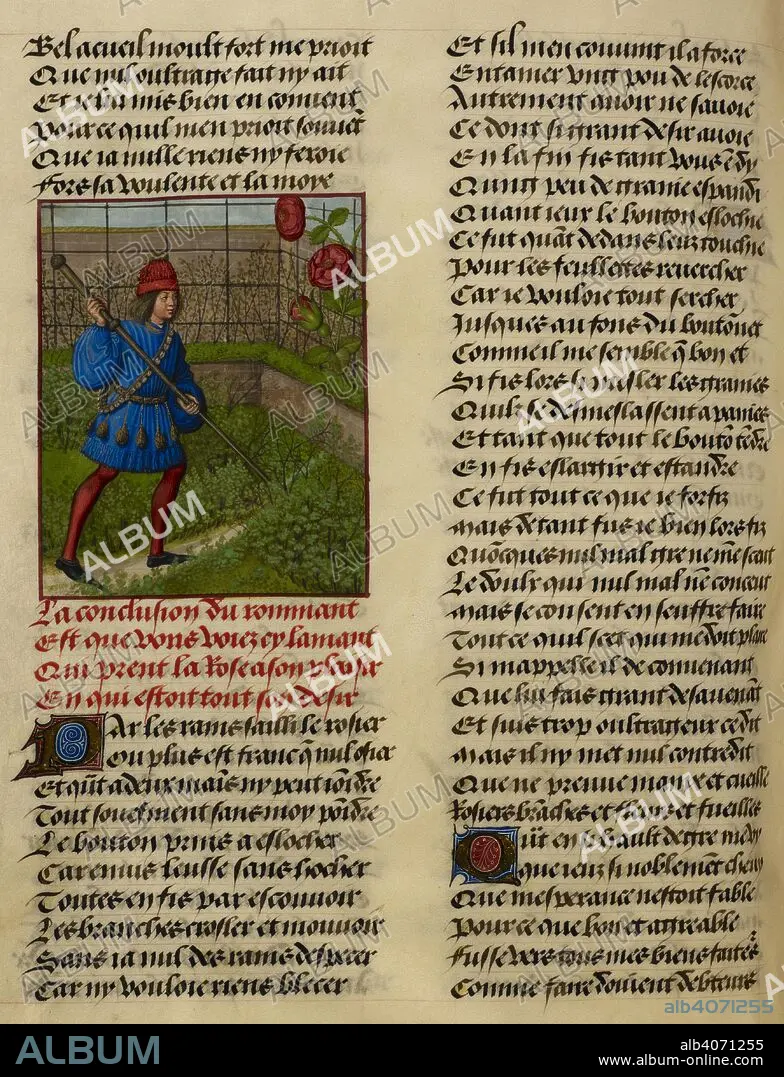 Bel acueil moult fort me prioit
Que nul oultrage fait ny ait
Et ie lui mis bien en couuent
Pour ce quil men prioit souuent
Que ia nulle riens ny feroie
Fors sa voulente et la moye
La conclusion du rommant
Est que vous voiez cy lamant
Qui prent la Rose a son plesir
En qui estoit tout son desir
Par les rams saisi le rosier
Ou plus est franc q nul osier
Et qūt a deux mains ny peut ioindre
Tout souefment sans moy poindre
Le bouton prins a eslochier
Car enuis leusse sans hochier
Toutes en fis par escouuoir
Les branches crosler et mouuoir
Sans ia nul des rams despecer
Car ny vouloie riens blecer
Et sil men conuint il a force
Entamer vng pou de lescorce
Autrement auoir ne sauoie
Ce dont si grant desir auoie
En la fin fis tant vous en dy
Qung peu de graine espandi
Quant ieux le bouton eslochie
Ce fut quāt dedans leuz touchie
Pour les feullettes reuercher
Car ie vouloie tout sercher
Jusques au fons du boutonet
Comme il me semble q bon et
Si fis lors si mesler les graines
Quilz se desmeslassent a paines
Et tant que tout le boutō tēdre
En fis eslargir et estandre
Ce fut tout ce que ie forfiz
Mais de tant fus ie bien lors fiz
Quōcques nul mal gre ne me scut
Le doulx qui nul mal ne concent
Mais se consent en seuffre faire
Tout ce quil scet qui me doit plaire
Si mappelle il de conuenant
Que lui fais grant desauenāt
Et suis trop oultrageux ce dit
Mais il ny met nul contredit
Que ne preuue manie et cueille
Rosiers brāches et fleurs et fueilles
Quāt en si hault degre me vy
Que ieuz si noblemēt cheuy
Que mesperance nestoit fable
Pour ce que bon et agreable
Fusse vers tous mes biens faictēs
Comme faire doiuent debteurs
ALBUM
alb4071255
ALBUM
alb4071255
www.album-online.com